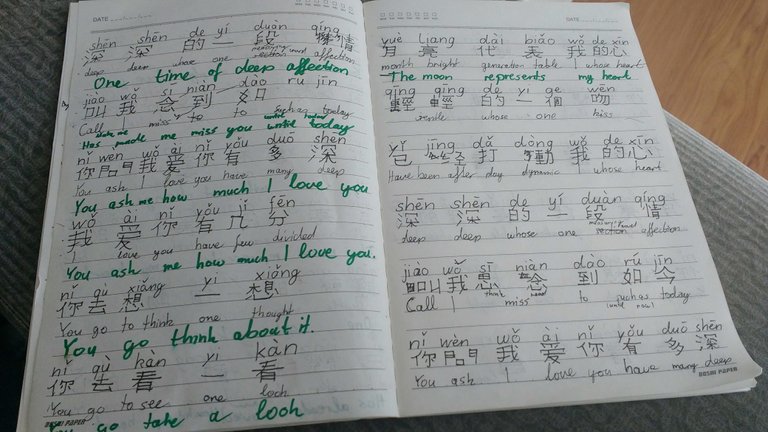 DATE
shēn shēn de yí duàn qíng
深 深 的 一 段 情
measuring word
deep deep whose one section affection
One time of deep affection
jiào wǒ sī niàn dào rú jīn
叫 我 念 到 如
Call miss to such as today
Has made me miss you until today
nǐ wen wǒ ài nǐ yǒu duō shēn
你 問 我 爱 你 有 多 深
You ask I love you have many deep
You ask me how much I love you
wǒ ài nǐ yǒu jǐ fēn
我 爱 你 有 几 分
I love you have few divided
You ask me how much I love you.
nǐ qù xiǎng yi xiǎng
你 去 想 一 想
You go to think one thought
You go think about it.
nǐ qù kàn yi kàn
你 去 看 一 看
You go to see one look
You go take a look
BOSHI PAPER
DATE
yuè liang dài biǎo wǒ de xīn
月 亮 代 表 我 的 心
month bright generation table I whose heart
The moon represents my heart
qīng qīng de yi ge wěn
輕 輕 的 一 個 吻
gentle whose one kiss
yǐ jīng dǎ dòng wǒ de xīn
已 经 打 動 我 的 心
Have been after day dynamic I whose heart
shēn shēn de yí duàn qíng
深 深 的 一 段 情
deep deep whose one section affection
jiào wǒ sī niàn dào rú jīn
叫 我 思 念 到 如 今
Call I miss to such as today
(until now)
nǐ wèn wǒ ài nǐ yǒu duō shēn
你 問 我 爱 你 有 多 深
You ask I love you have many deep
BOSHI PAPER